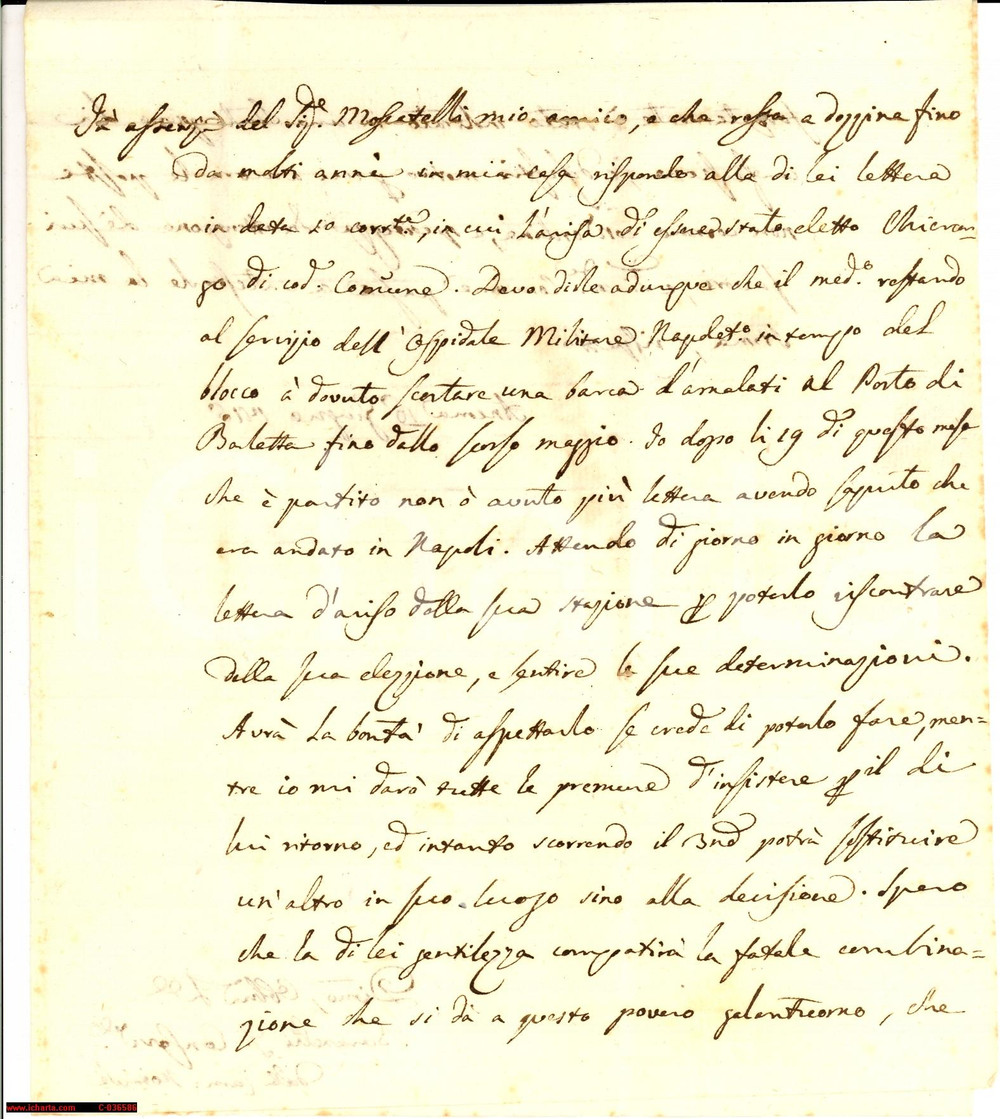 In assenza del Sig.e Moscatelli mio amico, e che resta a dozzina fino
da molti anni in mia casa rispondo alla di lei lettera
in data 10 corr.te, in cui l'avisa di essere stato eletto Chirur=
go di cod.a Comune. Devo dirle adunque che il med.o restando
al servizio dell'Ospidale Militare Napolet.o in tempo del
blocco à dovuto scortare una barca d'amalati al Porto di
Barletta fino dallo scorso maggio. Io dopo li 19 di questo mese
che è partito non ò avuto più lettera avendo saputo che
era andato in Napoli. Attendo di giorno in giorno la
lettera d'aviso dalla sua stazione p poterlo riscontrare
della sua elezzione, e sentire le sue determinazioni.
Avrà la bontà di aspettarlo se crede di poterlo fare, men=
tre io mi darò tutte le premure d'insistere p il di
lui ritorno, ed intanto scorrendo il potrà sostituire
un'altro in suo luogo sino alla decisione. Spero
che la di lei gentilezza compatirà la fatale combina=
zione che si dà a questo povero galantuomo, che
www.icharta.com C-036586